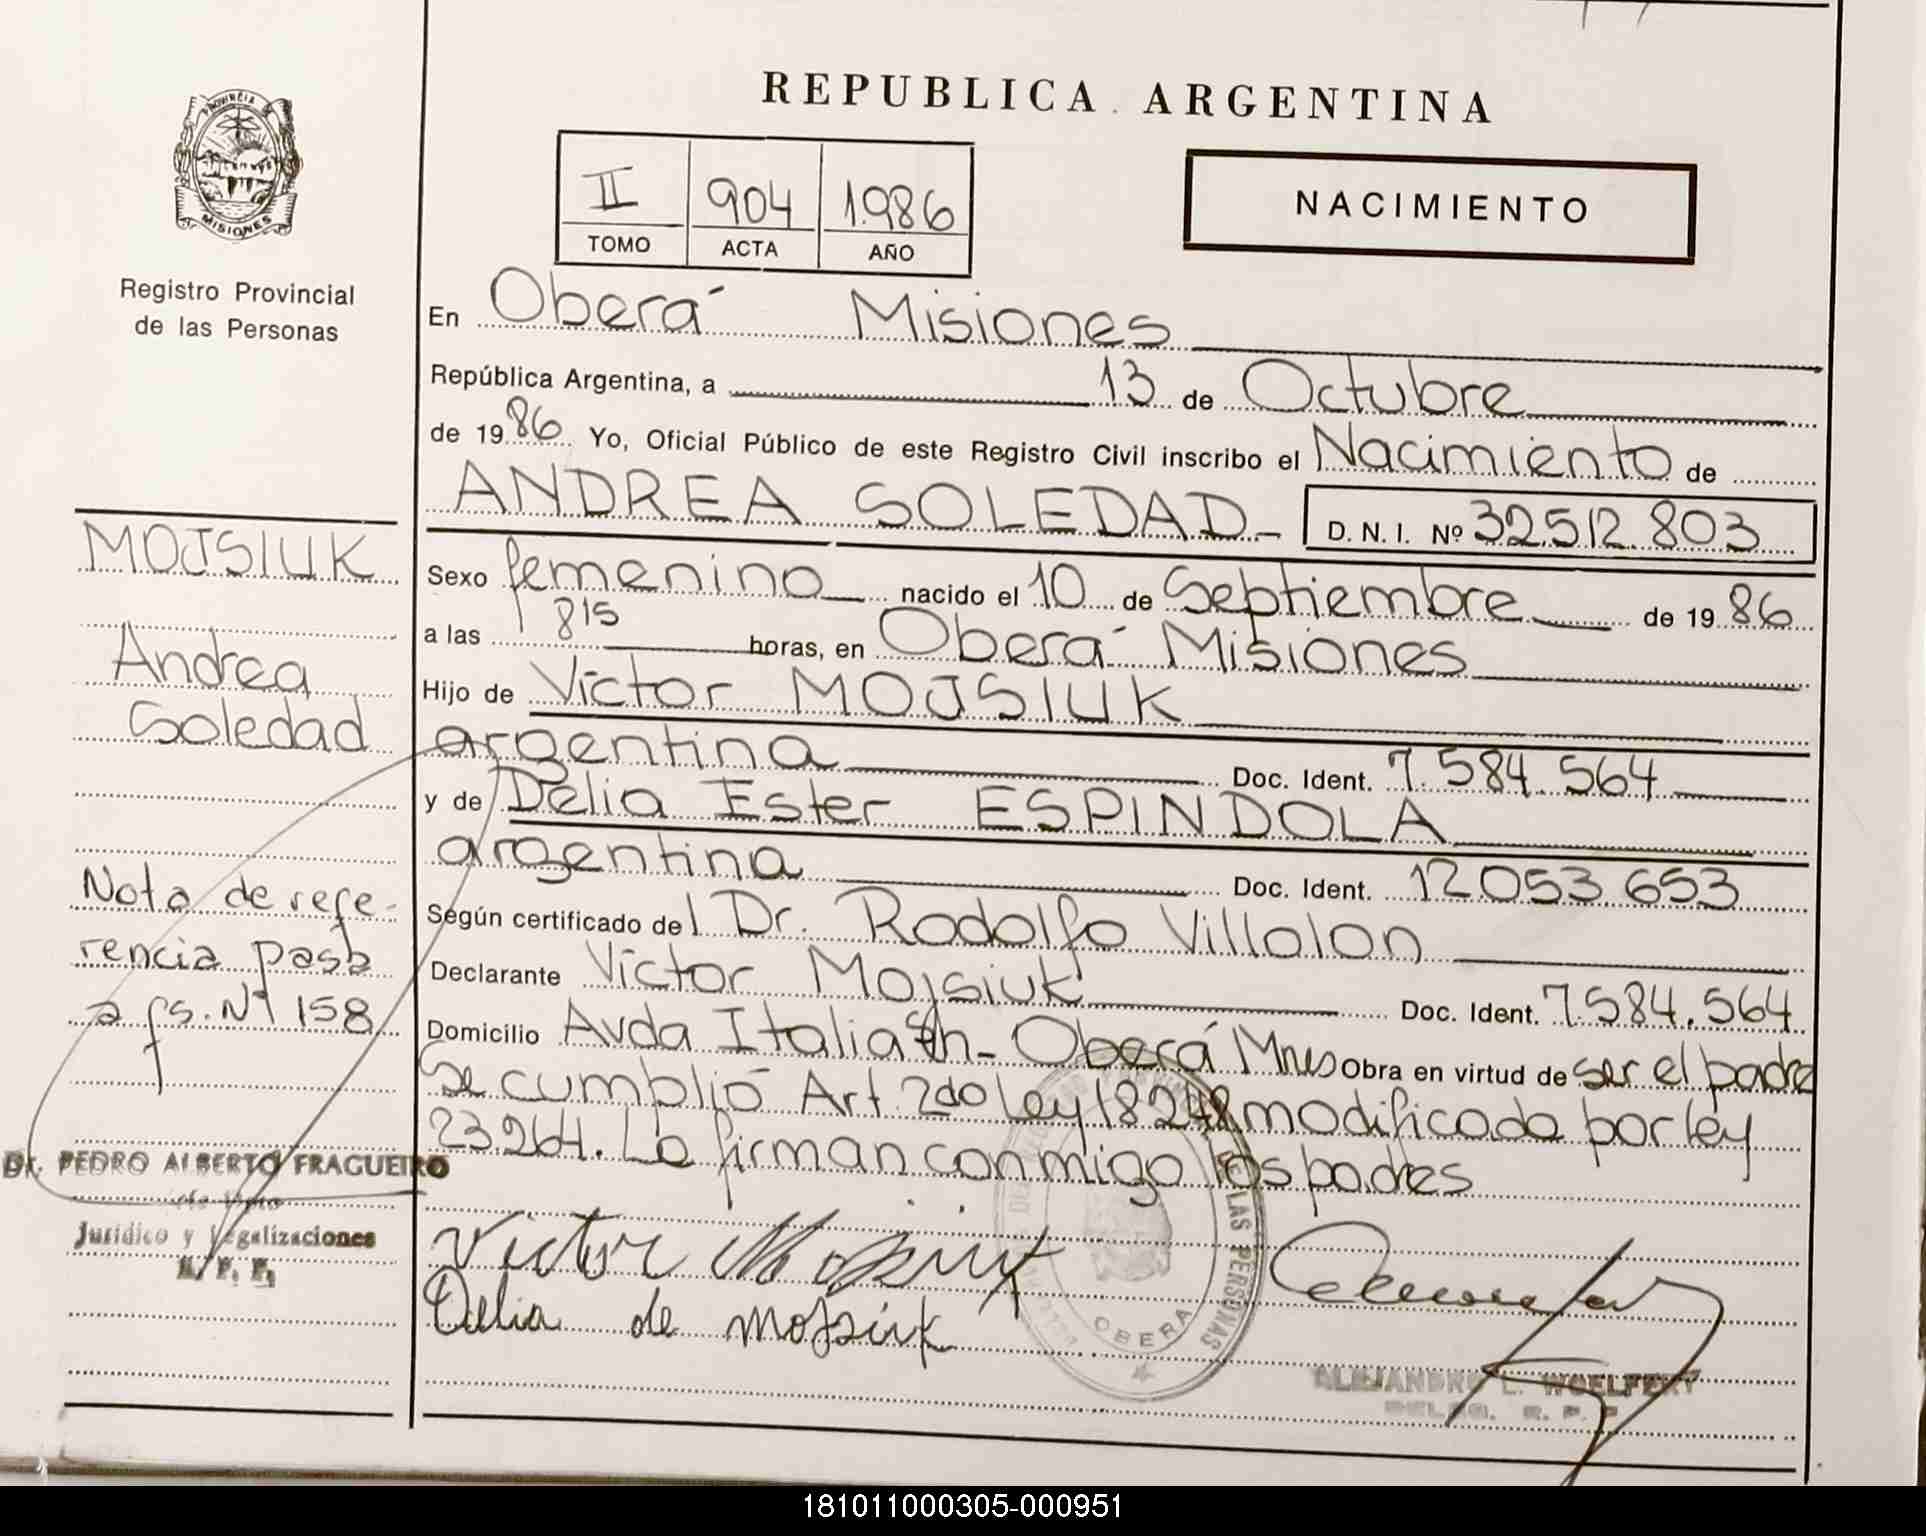 REPUBLICA ARGENTINA
PROVINCIA DE
MISIONES
Registro Provincial
de las Personas
II 904 1.986
TOMO ACTA AÑO
NACIMIENTO
En Oberá Misiones
República Argentina, a 13 de Octubre
de 1986 Yo, Oficial Público de este Registro Civil inscribo el Nacimiento de
ANDREA SOLEDAD D. N. I. Nº 32.512.803
Sexo femenino nacido el 10 de Septiembre de 1986
a las 815 horas, en Oberá Misiones
Hijo de Víctor MOJSIUK
argentina Doc. Ident. 7.584.564
y de Delia Ester ESPINDOLA
argentina Doc. Ident. 12.053.653
Según certificado del Dr. Rodolfo Villolon
Declarante Víctor Mojsiuk Doc. Ident. 7.584.564
Domicilio Avda Italia - Oberá Mnes Obra en virtud de ser el padre
Se cumplió Art. 2do Ley 18248 modificada por ley
23.264. La firman conmigo los padres
Victor Mojsiuk
Delia de Mojsiuk
MOJSIUK
Andrea
Soledad
Nota de refe-
rencia pasa
a fs. Nº 158
Dr. PEDRO ALBERTO FRAGUEIRO
Jurídico y Legalizaciones
DE LAS PERSONAS
OBERA
ALEJANDRO L. WOELFERT
181011000305-000951